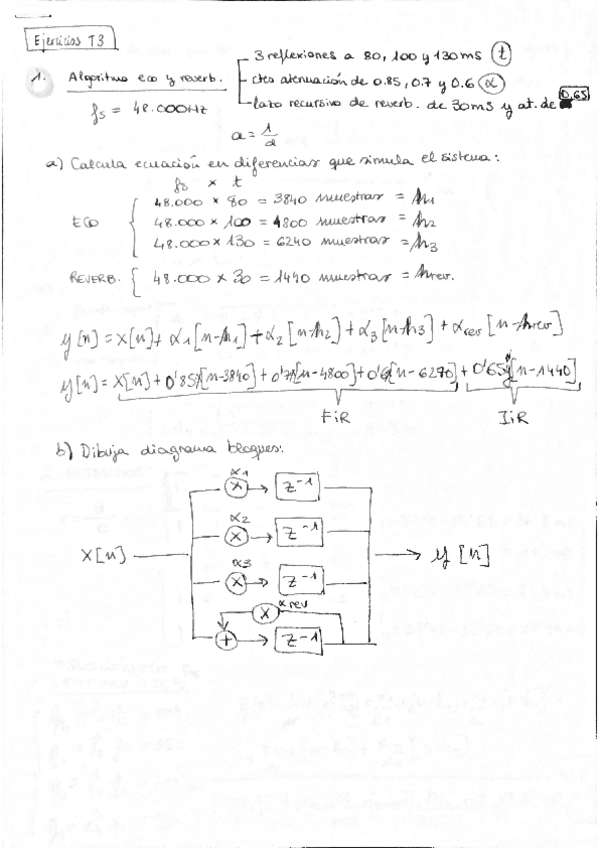 Ejercicios T3
1. Algoritmo eco y reverb.
3 reflexiones a 80, 100 y 130ms (t)
ctes atenuación de 0.85, 0.7 y 0.6 (α)
lazo recursivo de reverb. de 30ms y at. de 0.65
fs = 48.000Hz
a = 1/α
a) Calcula ecuación en diferencias que simula el sistema:
fs × t
ECO
48.000 × 80 = 3840 muestras = h1
48.000 × 100 = 4800 muestras = h2
48.000 × 130 = 6240 muestras = h3
REVERB. { 48.000 × 30 = 1440 muestras = hrev.
y[n] = x[n] + α1[n-h1] + α2[n-h2] + α3[n-h3] + αrev[n-hrev]
y[n] = x[n] + 0'85x[n-3840] + 0'7x[n-4800] + 0'6x[n-6270] + 0'65y[n-1440]
FiR IiR
b) Dibuja diagrama bloques:
α1
x z⁻¹
α2
x z⁻¹
x[n] y[n]
α3
x z⁻¹
x αrev
+ z⁻¹